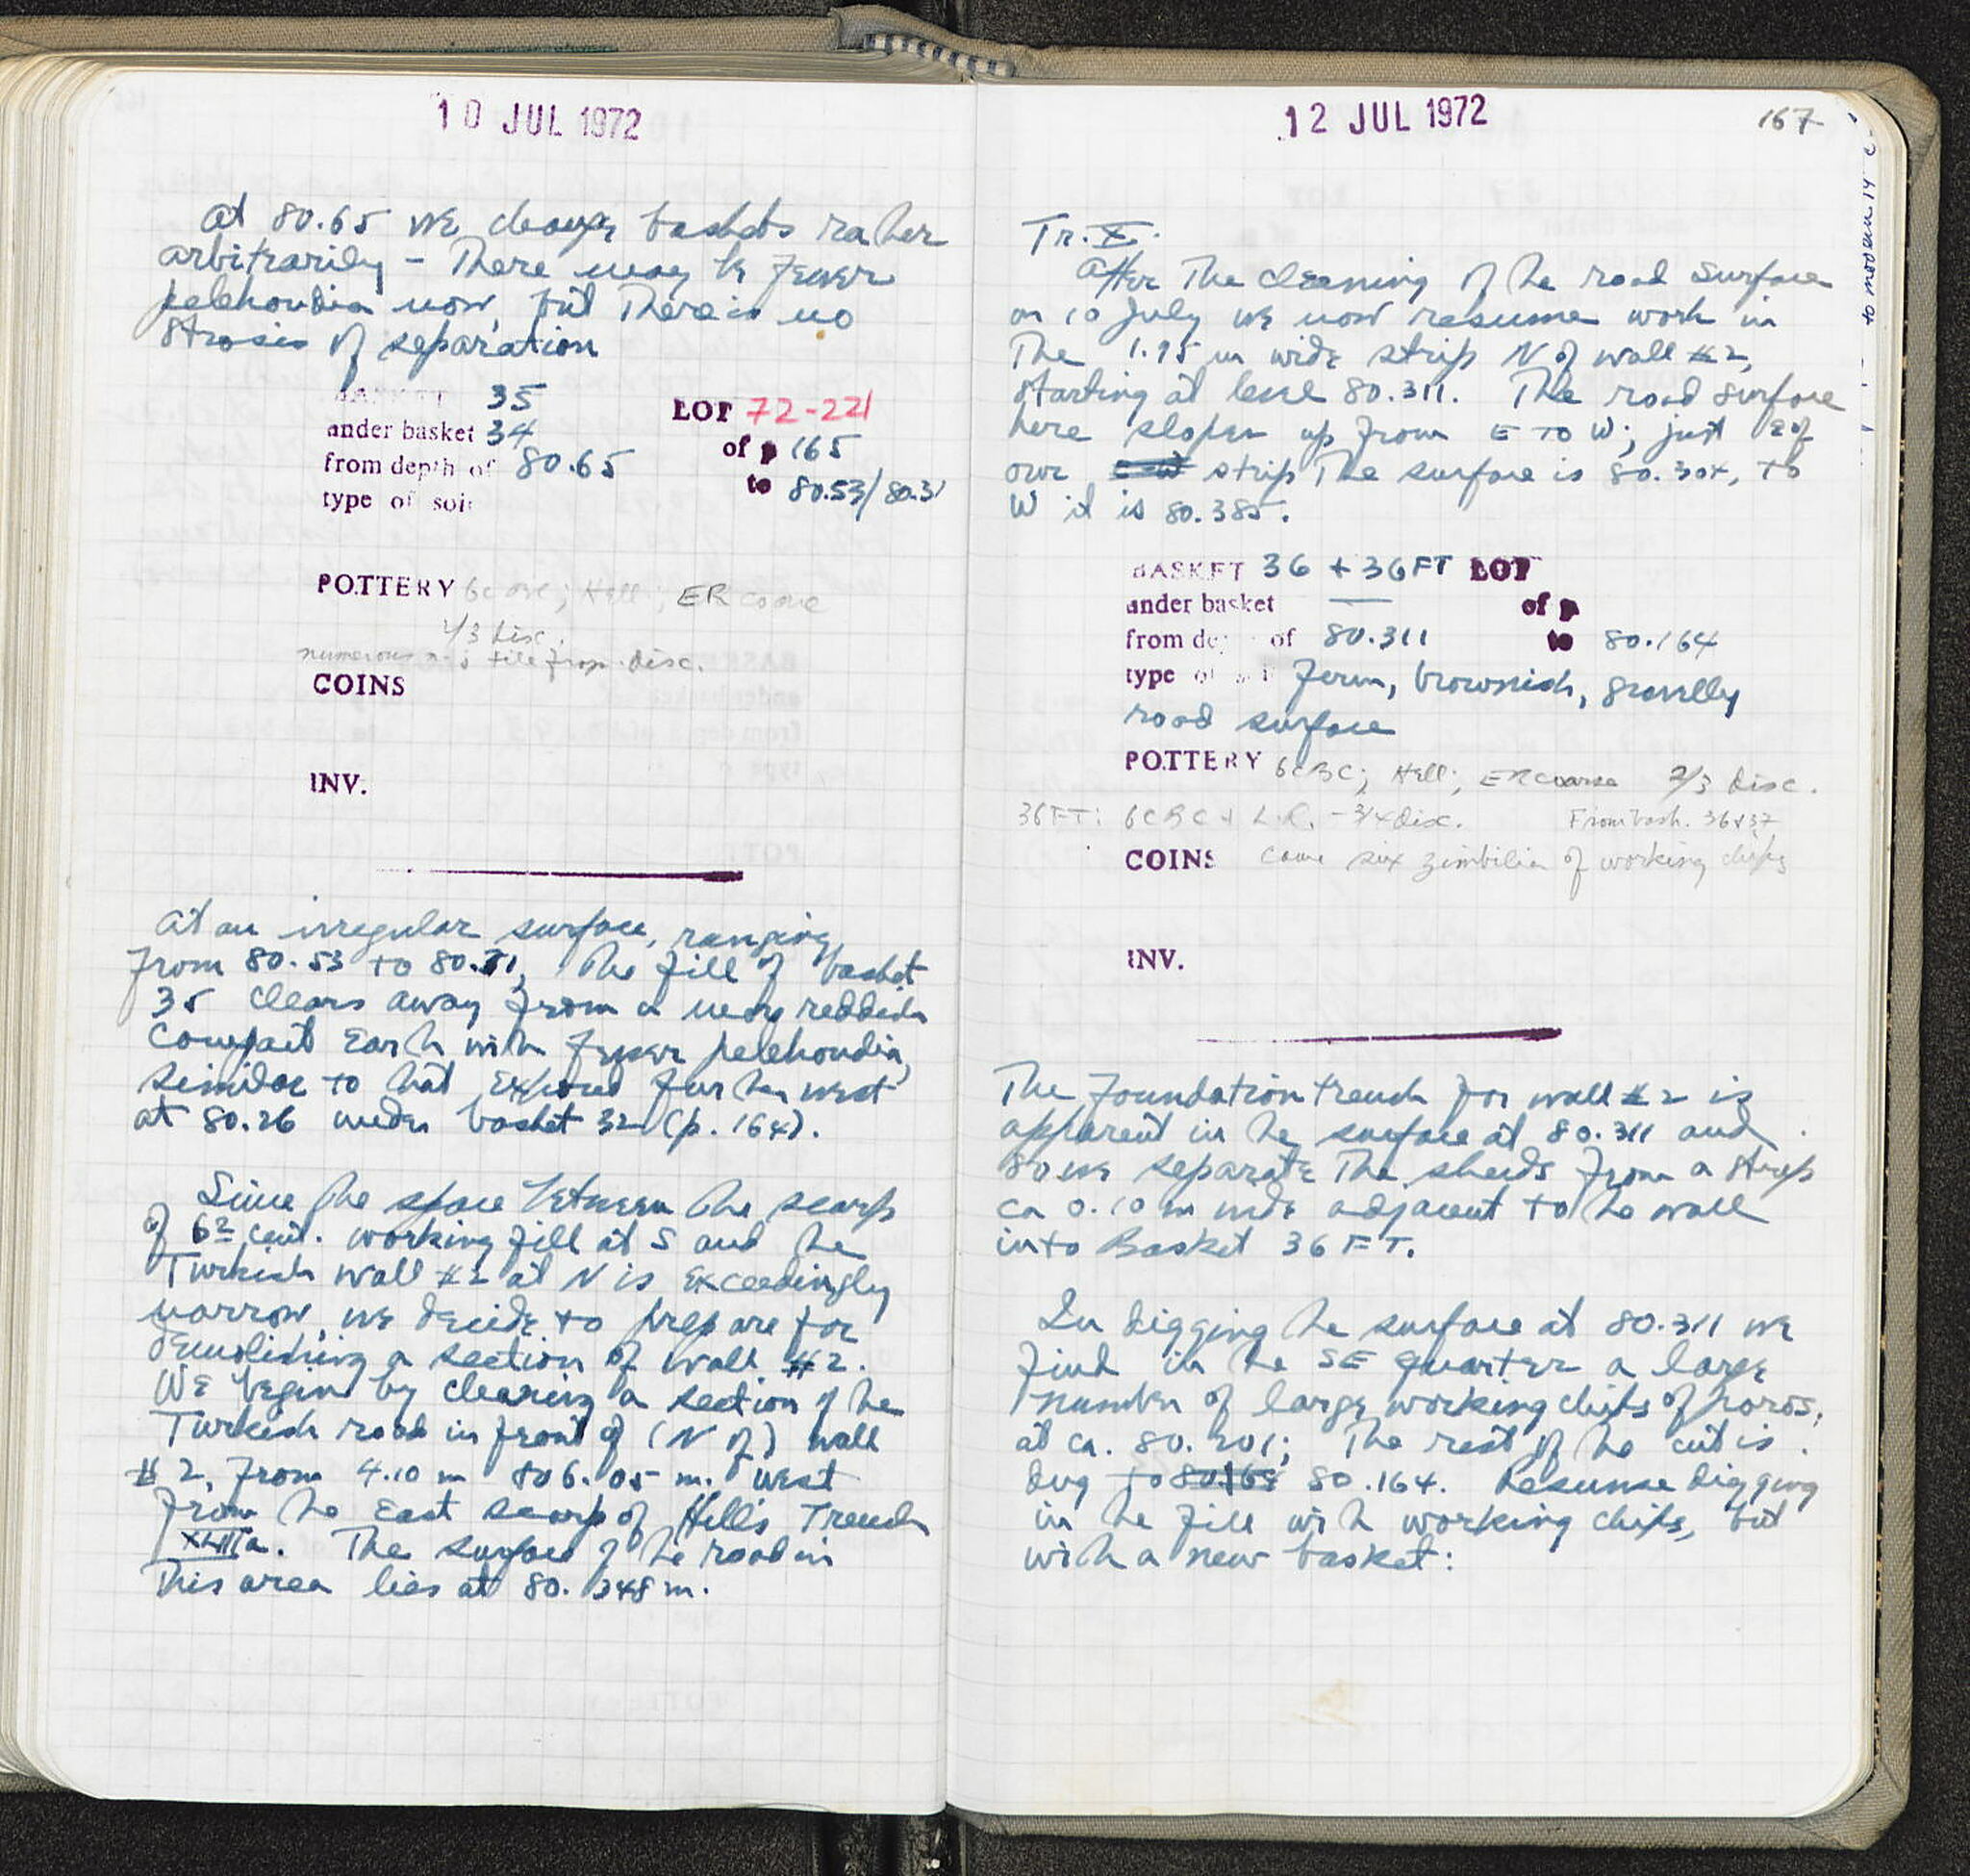 10 JUL 1972
At 80.65 we change baskets rather
arbitrarily - There may be fewer
pelekoudia now, but There is no
strosis of separation
BASKET 35
under basket 34
from depth of 80.65
type of soil
LOT 72-221
of p 165
to 80.53/80.31
POTTERY 6c BC; Hell; ER coarse
1/3 disc.
numerous tile frag. disc.
COINS
INV.
At an irregular surface, ranging
from 80.53 to 80.31, The fill of basket
35 clears away from a very reddish
compact earth with fewer pelekoudia,
similar to that exposed further west
at 80.26 under basket 32 (p. 164).
Since the space between the scarp
of 6th cent. working fill at S and the
Turkish wall #2 at N is exceedingly
narrow, we decide to prepare for
demolishing a section of wall #2.
We begin by clearing a section of the
Turkish road in front of (N of) wall
#2, from 4.10 m to 6.05 m. west
from the East scarp of Hill's Trench
XLIIIa. The surface of the road in
This area lies at 80.348 m.
12 JUL 1972
167
to modern
Tr. X.
After The cleaning of the road surface
on 10 July we now resume work in
The 1.95 m wide strip N of wall #2,
starting at level 80.311. The road surface
here slopes up from E to W; just E of
our strip The surface is 80.304, to
W it is 80.385.
BASKET 36 + 36FT LOT
under basket — of p
from depth of 80.311 to 80.164
type of soil Firm, brownish, gravelly
road surface
POTTERY 6c BC; Hell; ER coarse 2/3 disc.
36FT: 6c BC + L.R. - 3/4 disc. From bask. 36+37
COINS came six zimbilia of working chips
INV.
The Foundation trench for wall #2 is
apparent in the surface at 80.311 and
so we separate The sherds from a strip
ca 0.10 m wide adjacent to the wall
into Basket 36 FT.
In digging the surface at 80.311 we
find in the SE quarter a large
number of large working chips of poros,
at ca. 80.201; The rest of the cut is
dug to 80.164. Resume digging
in the fill with working chips, but
with a new basket: